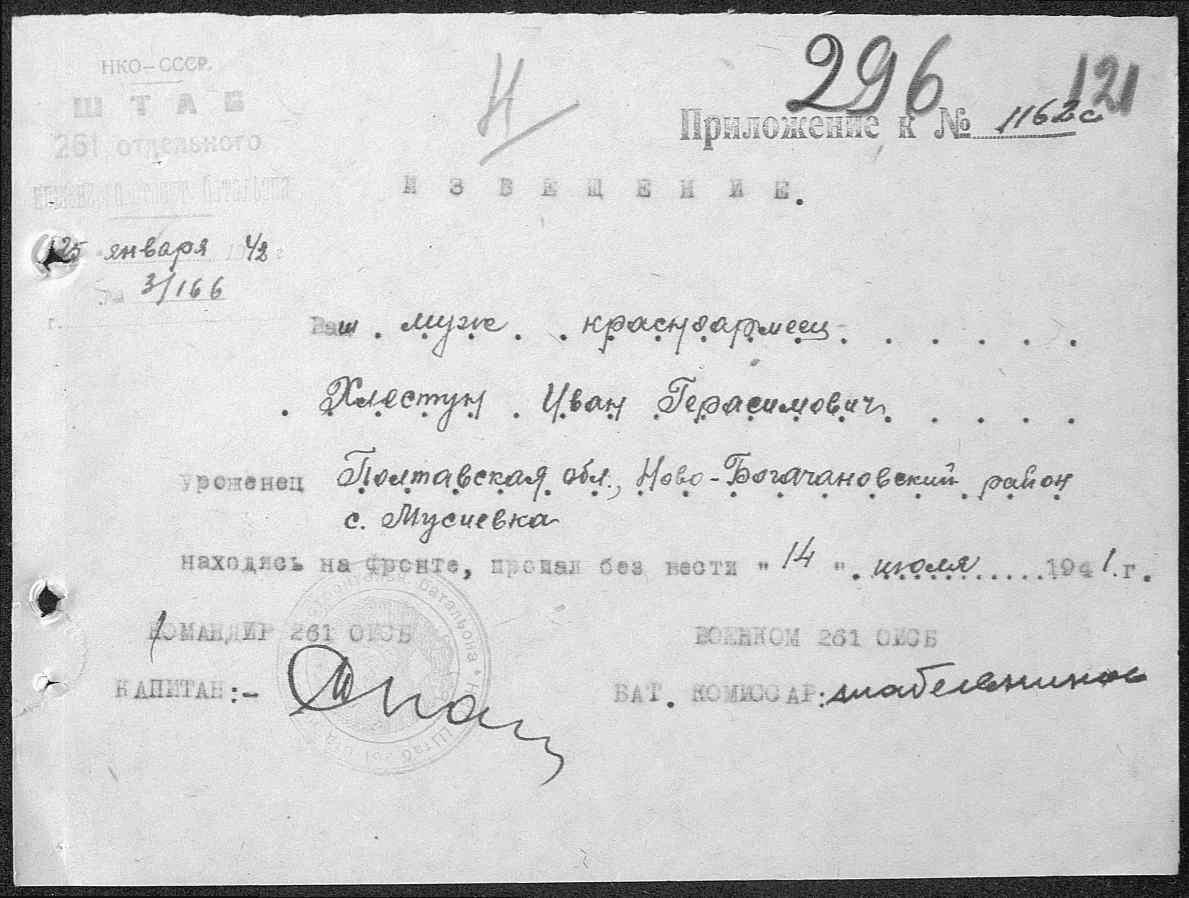 296
121
Н
НКО-СССР.
ШТАБ
261 отдельного
Приложение к № 1162с
ИЗВЕЩЕНИЕ.
25 января 1942 г
№ 3/166
г.
Ваш . муж . . красноармеец . . . . . .
. Хлестун . Иван Герасимович . . . . .
уроженец Полтавская обл., Ново-Богачановский район
с. Мусиевка
находясь на фронте, пропал без вести "14". июля ......194 1.г.
КОМАНДИР 261 ОИСБ
ВОЕНКОМ 261 ОИСБ
КАПИТАН:-
БАТ. КОМИССАР:
батальона
Штаб